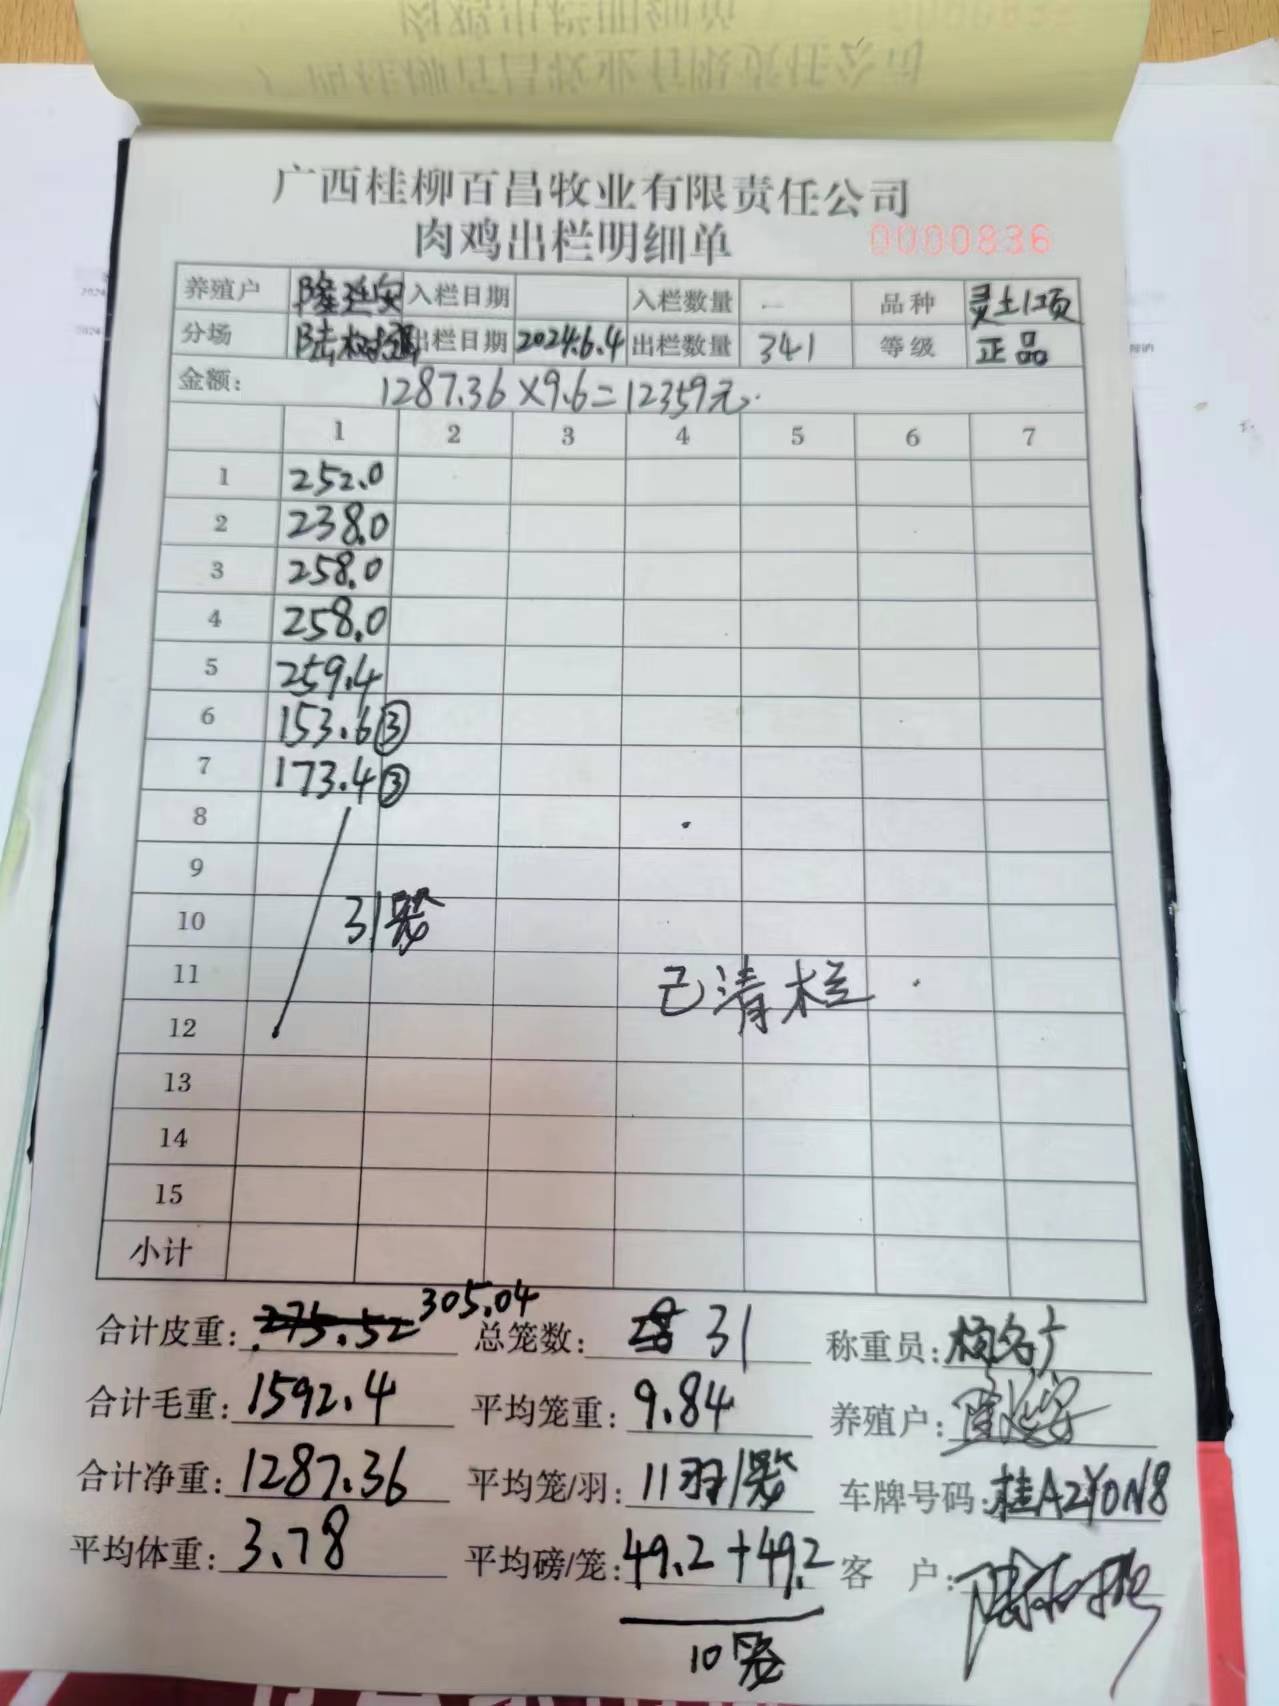 广西桂柳百昌牧业有限责任公司
肉鸡出栏明细单 0000836
养殖户 隆延安 入栏日期 入栏数量 品种 灵土1项
分场 陆树强 出栏日期 2024.6.4 出栏数量 341 等级 正品
金额: 1287.36×9.6=12359元.
1 2 3 4 5 6 7
1 252.0
2 238.0
3 258.0
4 258.0
5 259.4
6 153.6③
7 173.4③
8
9
10 31笼
11 已清栏
12
13
14
15
小计
合计皮重: 305.04 总笼数: 31 称重员:
合计毛重: 1592.4 平均笼重: 9.84 养殖户:
合计净重: 1287.36 平均笼/羽: 11羽/笼 车牌号码: 桂A2Y0N8
平均体重: 3.78 平均磅/笼: 49.2+49.2 客户:
10笼